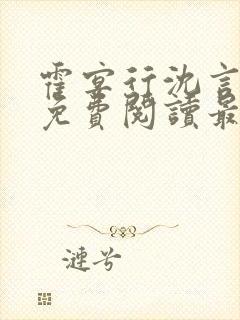 霍宴行沈言
免費閱讀最
涟兮